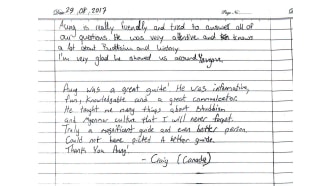 Date 29.08.2017
Page No.
Aung is really friendly and tried to answer all of
our questions. He was very attentive and knows
a lot about Buddhism and history.
I'm very glad he showed us around Yangon.
Aung was a great guide! He was informative,
fun, knowledgable and a great communicator.
He taught me many things about Buddhism
and Myanmar culture that I will never forget.
Truly a magnificent guide and even better person.
Could not have picked a better guide.
Thank You Aung!
- Craig (Canada)